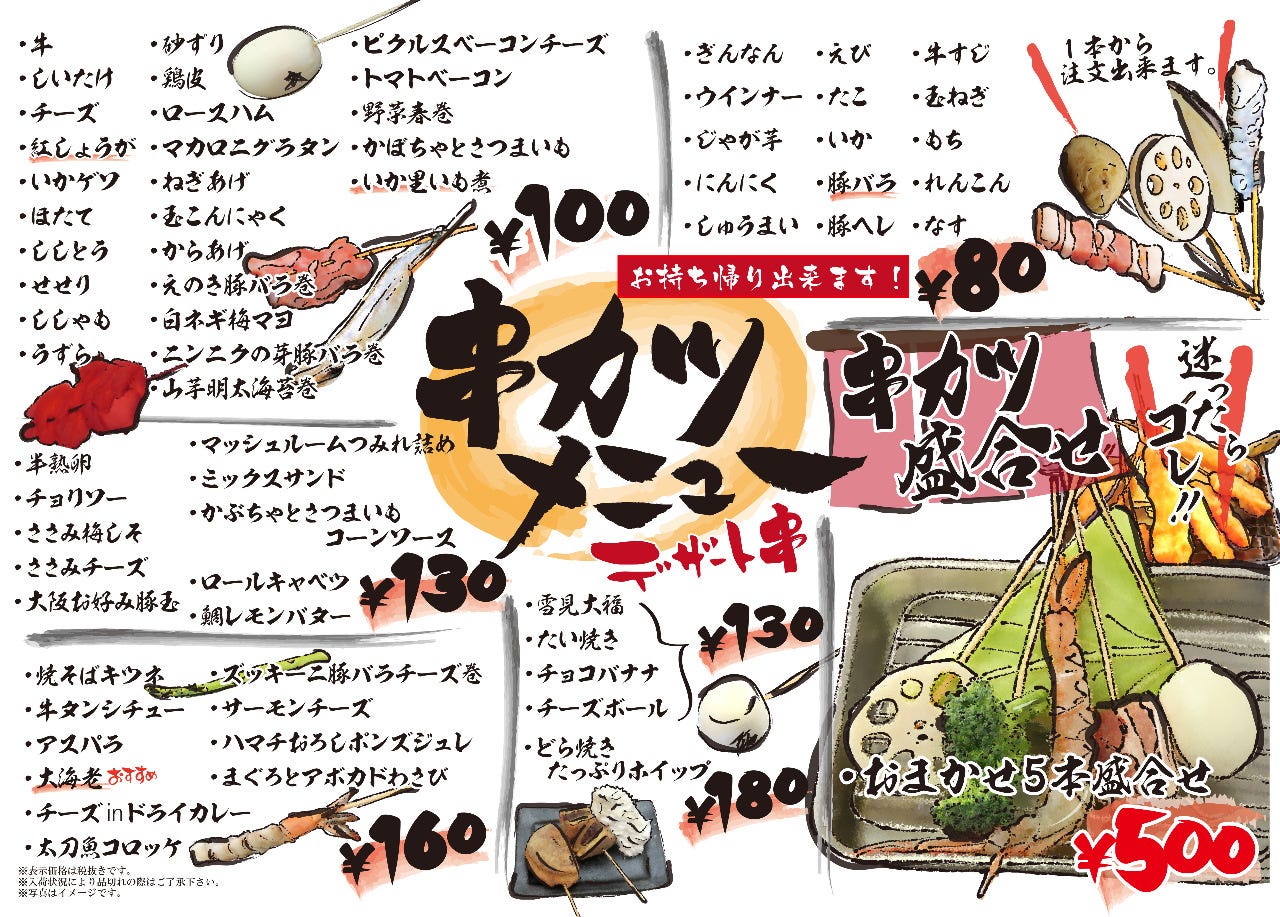 ・牛
・しいたけ
・チーズ
・紅しょうが
・いかゲソ
・ほたて
・ししとう
・せせり
・ししゃも
・うずら
・砂ずり
・鶏皮
・ロースハム
・マカロニグラタン
・ねぎあげ
・玉こんにゃく
・からあげ
・えのき豚バラ巻
・白ネギ梅マヨ
・ニンニクの芽豚バラ巻
・山芋明太海苔巻
・ピクルスベーコンチーズ
・トマトベーコン
・野菜春巻
・かぼちゃとさつまいも
・いか里いも煮
¥100
・ぎんなん
・ウインナー
・じゃが芋
・にんにく
・しゅうまい
・えび
・たこ
・いか
・豚バラ
・豚ヘレ
・牛すじ
・玉ねぎ
・もち
・れんこん
・なす
¥80
1本から
注文出来ます。
お持ち帰り出来ます！
串カツ
メニュー
・半熟卵
・チョリソー
・ささみ梅しそ
・ささみチーズ
・大阪お好み豚玉
・マッシュルームつみれ詰め
・ミックスサンド
・かぶちゃとさつまいも
コーンソース
・ロールキャベツ
・鯛レモンバター
¥130
・焼そばキツネ
・牛タンシチュー
・アスパラ
・大海老 おすすめ
・チーズinドライカレー
・太刀魚コロッケ
・ズッキーニ豚バラチーズ巻
・サーモンチーズ
・ハマチおろしポンズジュレ
・まぐろとアボカドわさび
¥160
※表示価格は税抜きです。
※入荷状況により品切れの際はご了承下さい。
※写真はイメージです。
デザート串
・雪見大福
・たい焼き
・チョコバナナ
・チーズボール
¥130
・どら焼き
たっぷりホイップ
¥180
串カツ
盛合せ
迷ったら
コレ!!
・おまかせ5本盛合せ
¥500